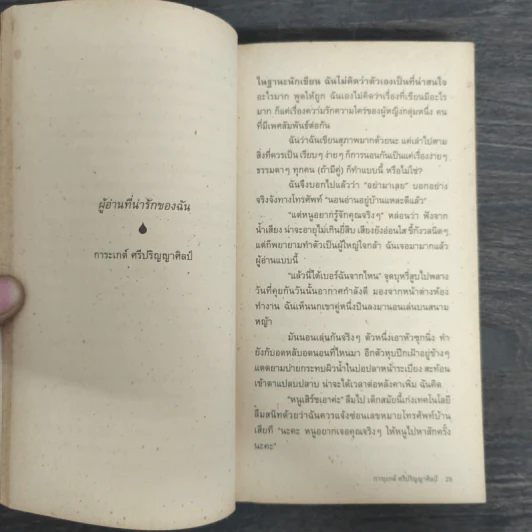 ผู้อ่านที่น่ารักของฉัน
การะเกต์ ศรีปริญญาศิลป์
ในฐานะนักเขียน ฉันไม่คิดว่าตัวเองเป็นที่น่าสนใจ
อะไรมาก พูดให้ถูก ฉันเองไม่คิดว่าเรื่องที่เขียนมีอะไร
มาก ก็แค่เรื่องความรักความใคร่ของผู้หญิงกลุ่มหนึ่ง คน
ที่มีเพศสัมพันธ์ต่อกัน
ฉันว่าฉันเขียนสุภาพมากด้วยนะ แค่เล่าไปตาม
สิ่งที่ควรเป็น เรียบๆ ง่ายๆ ก็การนอนกันเป็นแค่เรื่องง่ายๆ
ธรรมดาๆ ทุกคน (ถ้ามีคู่) ก็ทำแบบนี้ หรือไม่ใช่?
ฉันจึงบอกไปแล้วว่า "อย่ามาเลย" บอกอย่าง
จริงจังทางโทรศัพท์ "นอนอ่านอยู่บ้านแหละดีแล้ว"
"แต่หนูอยากรู้จักคุณจริงๆ" หล่อนว่า ฟังจาก
น้ำเสียง น่าจะอายุไม่เกินยี่สิบ เสียงยังอ่อนใส ขี้กังวลนิดๆ
แต่ก็พยายามทำตัวเป็นผู้ใหญ่ใจกล้า ฉันเจอมามากแล้ว
ผู้อ่านแบบนี้
"แล้วนี่ได้เบอร์ฉันจากไหน" จุดบุหรี่สูบไปพลาง
วันที่คุยกันวันนั้นอากาศกำลังดี มองจากหน้าต่างห้อง
ทำงาน ฉันเห็นนกเขาคู่หนึ่งบินลงมานอนเล่นบนสนาม
หญ้า
มันนอนเล่นกันจริงๆ ตัวหนึ่งเอาหัวซุกนิ่ง ทำ
ยังกับอดหลับอดนอนที่ไหนมา อีกตัวหุบปีกเฝ้าอยู่ข้างๆ
แดดยามบ่ายกระทบผิวน้ำในบ่อปลาหน้าระเบียง สะท้อน
เข้าตาแปลบปลาบ น่าจะได้เวลาต่อหลังคาเพิ่ม ฉันคิด
"หนูเสิร์ชเอาค่ะ" ลืมไป เด็กสมัยนี้เก่งเทคโนโลยี
ลืมสนิทด้วยว่าฉันควรแจ้งซ่อนเลขหมายโทรศัพท์บ้าน
เสียที "นะคะ หนูอยากเจอคุณจริงๆ ให้หนูไปหาสักครั้ง
นะคะ"
การะเกต์ ศรีปริญญาศิลป์